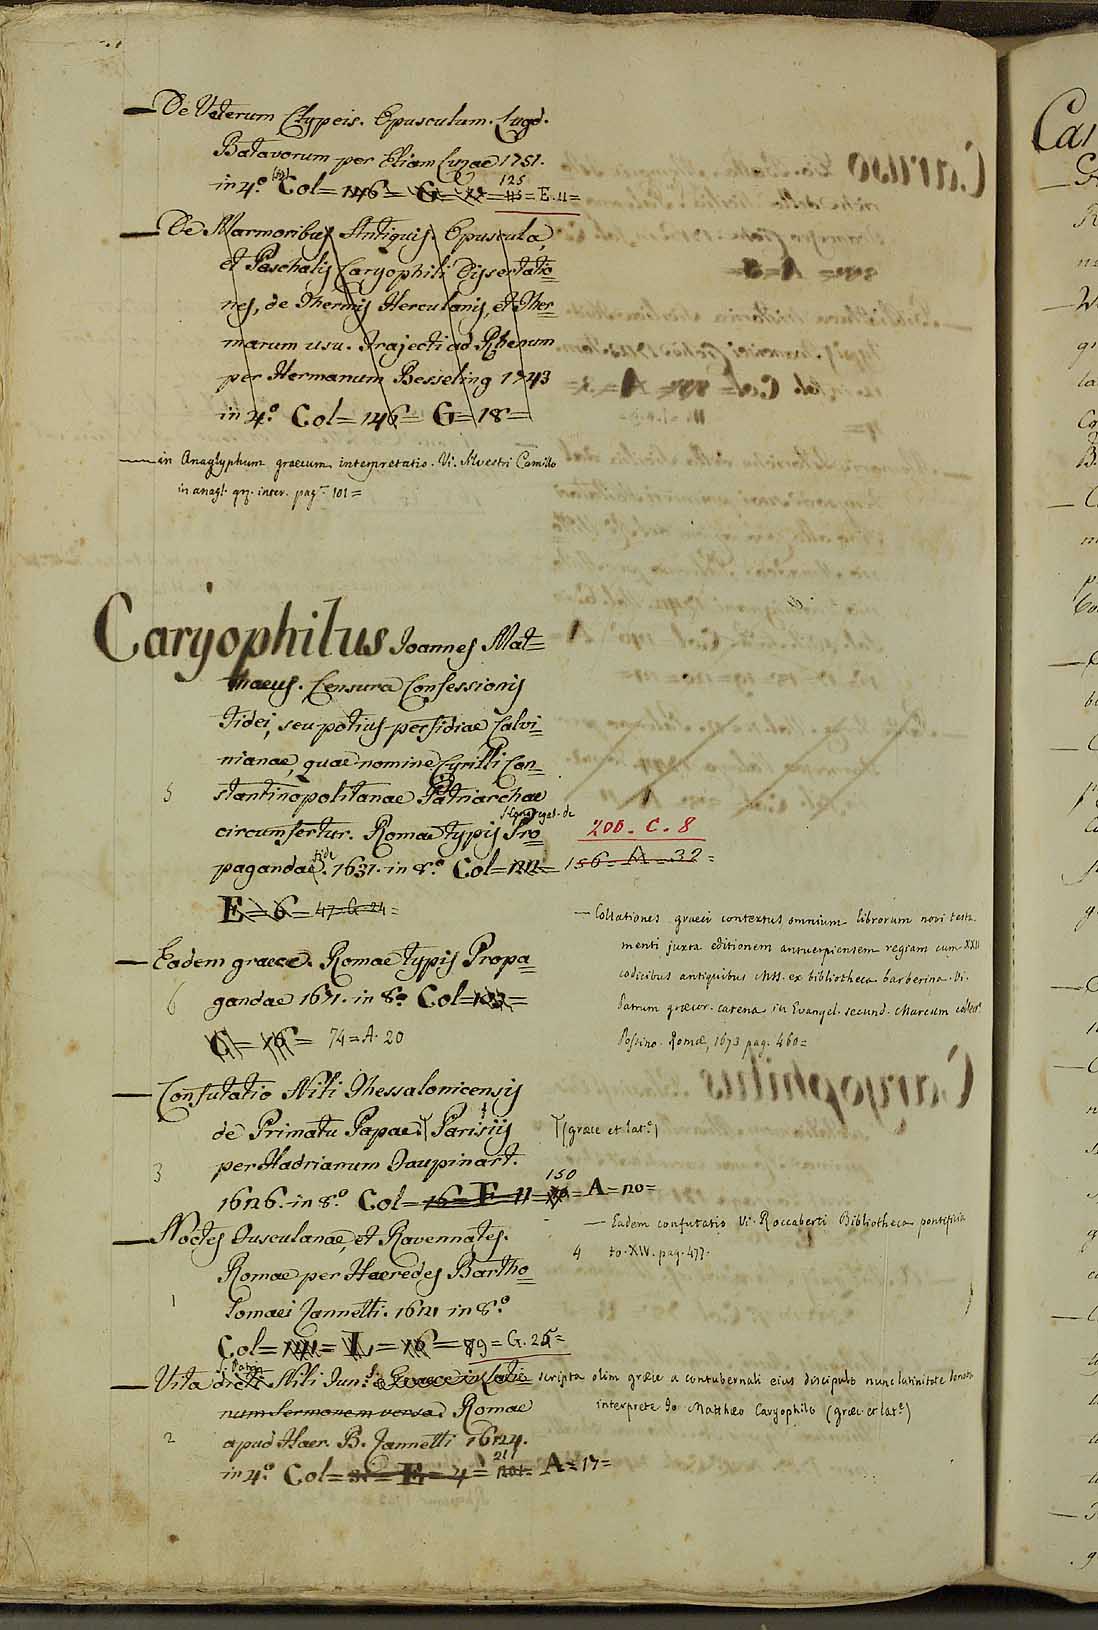 — De Veterum Clypeis. Opusculum. Lugd.
Batavorum per Eliam Luzac 1751.
in 4.º Col= 146= G= = 125 113= E. 11=
— De Marmoribus Antiquis Opuscula,
et Paschalis Caryophili Dissertatio=
nes, de Thermis Herculanis, et Ther=
marum usu. Trajecti ad Rhenum
per Hermanum Besseling 1743
in 4.º Col= 146= G= 18=
— in Anaglyphum graecum interpretatio. Vi. Silvestri Camillo
in anagl. gr. inter. pag. 101=
Caryophilus Joannes Mat=
thaeus. Censura Confessionis
fidei, seu potius perfidiae Calvi=
nianae, quae nomine Cyrilli Con=
5 stantinopolitanae Patriarchae
circumfertur. Romae typis S. Congregat. de Pro
pagandae fide. 1631. in 8.º Col= 122= 156= A= 32=
200. C. 8
E= 6= 47= G. 24=
— Eadem graece. Romae typis Propa=
6 gandae 1671. in 8.º Col=
G= 16= 74= A. 20
— Collationes graeci contextus omnium librorum novi testa
menti juxta editionem antuerpiensem regiam cum XXII
codicibus antiquibus MSS. ex bibliotheca barberina. Vi.
Patrum graecor. catena in Evangel. secund. Marcum collect.
Possino. Romæ, 1673 pag. 460=
— Confutatio Nili Thessalonicensis
de Primatu Papae. Parisiis (græce et lat.e)
3 per Hadrianum Taupinart.
1626. in 8.º Col= 16= E= 11= 150 = A= 20=
— Eadem confutatio Vi. Roccaberti Bibliotheca pontificia
4 to. XIV. pag. 477.
— Noctes Tusculanae, et Ravennates.
Romae per Haeredes Bartho=
1 lomaei Zannetti. 1621 in 8.º
Col= 141= L= 16= 89= G. 25=
— Vita S. Patris Nili Jun. Graece in Latinum scripta olim græce a contubernali eius discipulo nunc latinitate donata
num Sermonem versa. Romae interprete Jo Matthæo Caryophilo (græc. et lat.e)
2 apud Haer. B. Zannetti 1624.
in 4.º Col= 31= E= 4= 21 101= A= 17=